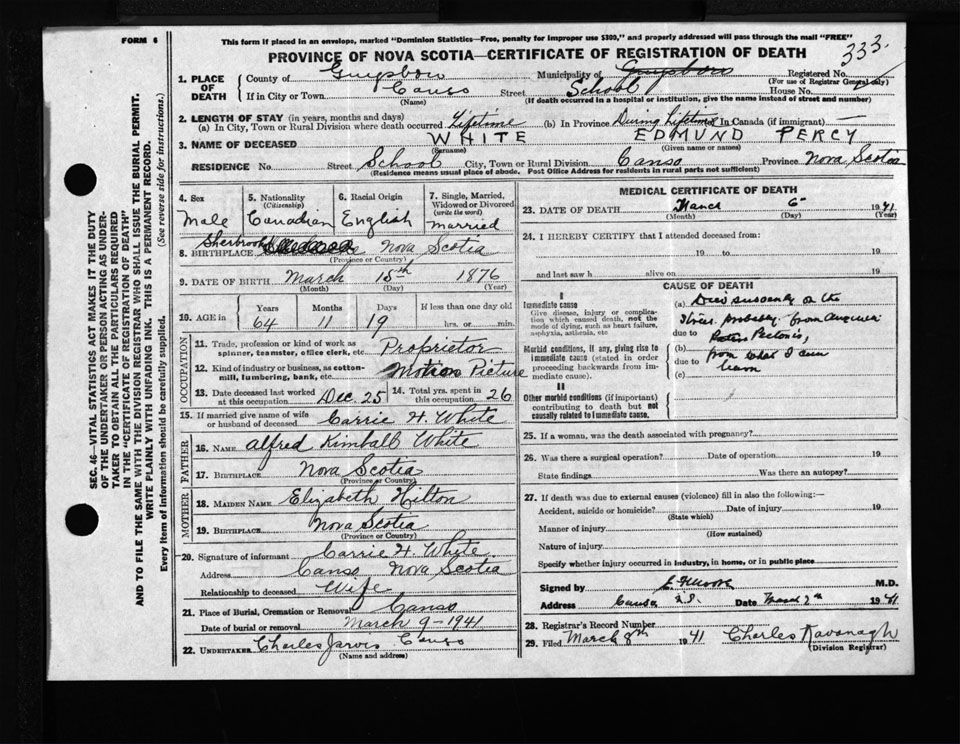 FORM 6
This form if placed in an envelope, marked "Dominion Statistics—Free, penalty for improper use $300," and properly addressed will pass through the mail "FREE"
PROVINCE OF NOVA SCOTIA—CERTIFICATE OF REGISTRATION OF DEATH
333.
1. PLACE OF DEATH County of Guysboro Municipality of Guysboro Registered No.
(For use of Registrar General only)
If in City or Town Canso Street School House No.
(Name) (If death occurred in a hospital or institution, give the name instead of street and number)
2. LENGTH OF STAY (in years, months and days)
(a) In City, Town or Rural Division where death occurred Lifetime (b) In Province During Lifetime In Canada (if immigrant) —
3. NAME OF DECEASED WHITE EDMUND PERCY
(Surname) (Given name or names)
RESIDENCE No. Street School City, Town or Rural Division Canso Province Nova Scotia
(Residence means usual place of abode. Post Office Address for residents in rural parts not sufficient)
4. Sex 5. Nationality (Citizenship) 6. Racial Origin 7. Single, Married, Widowed or Divorced (write the word)
Male Canadian English married
Sherbrooke
8. BIRTHPLACE Nova Scotia
(Province or Country)
9. DATE OF BIRTH March 15th 1876
(Month) (Day) (Year)
10. AGE in Years Months Days If less than one day old
64 11 19 hrs. or min.
OCCUPATION
11. Trade, profession or kind of work as spinner, teamster, office clerk, etc. Proprietor
12. Kind of industry or business, as cotton-mill, lumbering, bank, etc. Motion Picture
13. Date deceased last worked at this occupation Dec. 25 14. Total yrs. spent in this occupation 26
15. If married give name of wife or husband of deceased Carrie H. White
FATHER
16. NAME Alfred Kimball White
17. BIRTHPLACE Nova Scotia
(Province or Country)
MOTHER
18. MAIDEN NAME Elizabeth Hilton
19. BIRTHPLACE Nova Scotia
(Province or Country)
20. Signature of informant Carrie H. White
Address Canso Nova Scotia
Relationship to deceased Wife
21. Place of Burial, Cremation or Removal Canso
Date of burial or removal March 9-1941
22. UNDERTAKER Charles Jarvis Canso
(Name and address)
MEDICAL CERTIFICATE OF DEATH
23. DATE OF DEATH March 6 1941
(Month) (Day) (Year)
24. I HEREBY CERTIFY that I attended deceased from:
19 to 19
and last saw h alive on 19
CAUSE OF DEATH
I
Immediate cause
Give disease, injury or complication which caused death, not the mode of dying, such as heart failure, asphyxia, asthenia, etc
Morbid conditions, if any, giving rise to immediate cause (stated in order proceeding backwards from immediate cause).
II
Other morbid conditions (if important) contributing to death but not causally related to immediate cause.
(a) Died suddenly on the
Street probably from
due to Pectoris,
(b) from what I can
due to learn
(c)
25. If a woman, was the death associated with pregnancy?
26. Was there a surgical operation? Date of operation 19
State findings Was there an autopsy?
27. If death was due to external causes (violence) fill in also the following:—
Accident, suicide or homicide? Date of injury 19
(State which)
Manner of injury
(How sustained)
Nature of injury
Specify whether injury occurred in industry, in home, or in public place
Signed by Moore M.D.
Address Canso N.S. Date March 1941
28. Registrar's Record Number
29. Filed March 8th 1941 Charles Kavanagh
(Division Registrar)
SEC. 46—VITAL STATISTICS ACT MAKES IT THE DUTY
OF THE UNDERTAKER OR PERSON ACTING AS UNDER-
TAKER TO OBTAIN ALL THE PARTICULARS REQUIRED
IN THE "CERTIFICATE OF REGISTRATION OF DEATH"
AND TO FILE THE SAME WITH THE DIVISION REGISTRAR WHO SHALL ISSUE THE BURIAL PERMIT.
WRITE PLAINLY WITH UNFADING INK. THIS IS A PERMANENT RECORD.
Every item of information should be carefully supplied. (See reverse side for instructions.)